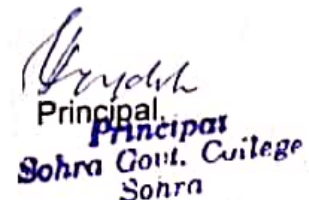 Principal.
Principal
Sohra Govt. College
Sohra